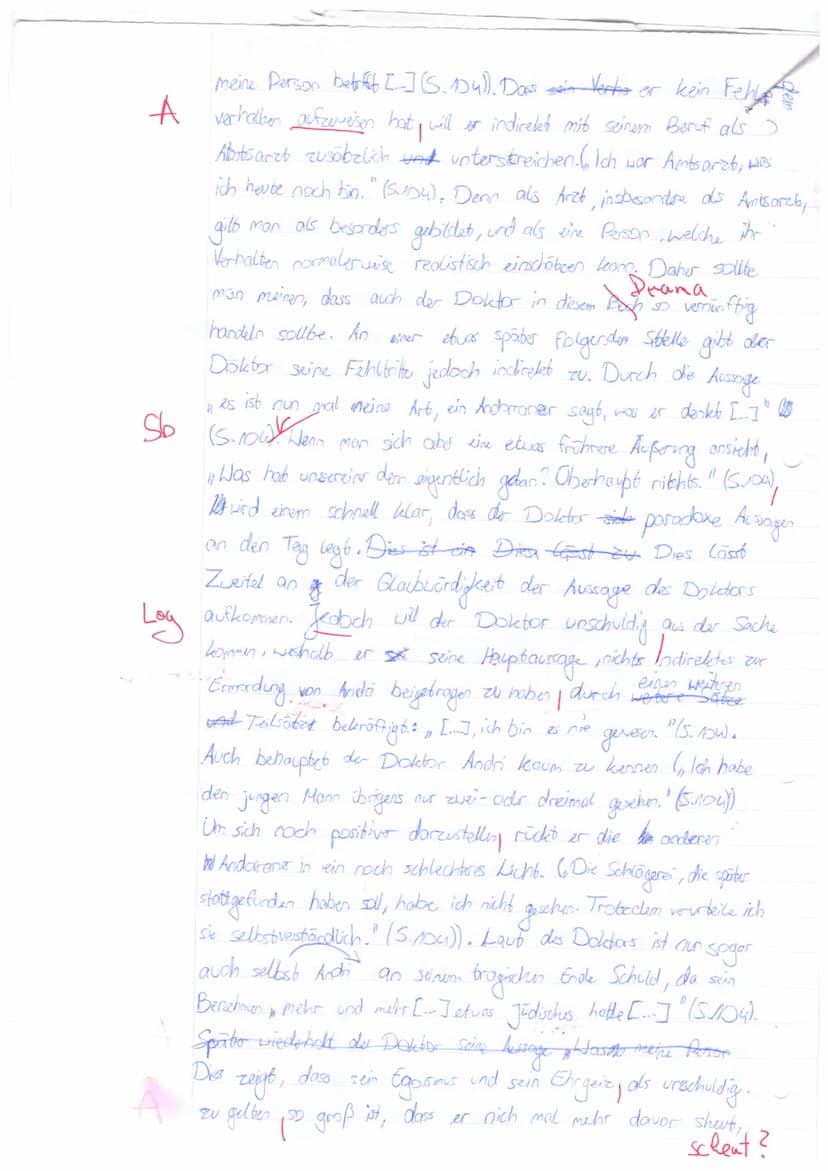 meine Person betrifft [...] (S. 104)). Dass sein Verha er kein Fehl
A verhalten aufzuweisen hat, will er indirekt mit seinem Beruf als
Abtsarzt zusätzlich und unterstreichen. („Ich war Amtsarzt, was
ich heute noch bin." (S.104). Denn als Arzt, insbesondere als Amtsarzt,
gilt man als besonders gebildet, und als eine Person, welche ihr
Verhalten normalerweise realistisch einschätzen kann. Daher sollte
Drama
man meinen, dass auch der Doktor in diesem Buch so vernünftig
handeln sollte. An einer etwas später folgenden Stelle gibt der
Doktor seine Fehltritte jedoch indirekt zu. Durch die Aussage
„es ist nun mal meine Art, ein Andorraner sagt, was er denkt [...]"
Sb (S.104). Wenn man sich aber eine etwas frührere Äußerung ansieht,
„Was hat unsereiner denn eigentlich getan? Überhaupt nichts." (S.104),
wird einem schnell klar, dass der Doktor sich paradoxe Aussagen
an den Tag legt. Dies ist ein Dies lässt zu Dies lässt
Zweifel an der Glaubwürdigkeit der Aussage des Doktors
Log aufkommen. Jedoch will der Doktor unschuldig aus der Sache
kommen, weshalb er seine Hauptaussage, nichts Indirektes zur
einen weiteren
Ermordung von Andri beigetragen zu haben, durch weitere Sätze
und Teilsätze bekräftigt: „[...], ich bin es nie gewesen." (S. 104).
Auch behauptet der Doktor Andri kaum zu kennen („Ich habe
den jungen Mann übrigens nur zwei- oder dreimal gesehen." (S.104))
Um sich noch positiver darzustellen, rückt er die anderen
Andorraner in ein noch schlechteres Licht. („Die Schlägerei, die später
stattgefunden haben soll, habe ich nicht gesehen. Trotzdem verurteile ich
sie selbstverständlich." (S.104)). Laut des Doktors ist nur sogar
auch selbst Andri an seinem tragischen Ende Schuld, da sein
Benehmen „mehr und mehr [...] etwas Jüdisches hatte [...]" (S.104).
Später wiederholt der Doktor seine Aussage „Was meine Person
Dies zeigt, dass sein Egoismus und sein Ehrgeiz, als unschuldig
A zu gelten, so groß ist, dass er nich mal mehr davor sheut,
scheut?